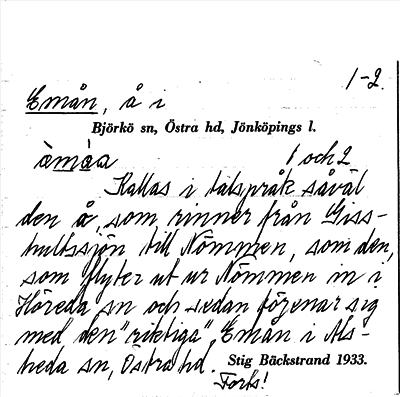 1-2.
Emån, å i
Björkö sn, Östra hd, Jönköpings l.
àmáa 1 och 2
Kallas i talspråk såväl
den å, som rinner från Giss-
hultssjön till Nömmen, som den,
som flyter ut ur Nömmen in i
Höreda sn och sedan förenar sig
med den "riktiga" Emån i Als-
heda sn, Östra hd. Stig Bäckstrand 1933.
Forts!